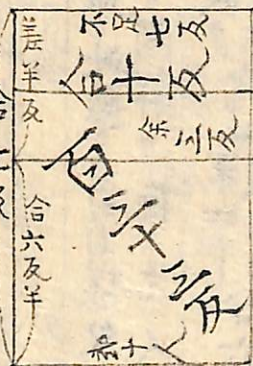 不足七反
合十反
余三反
差半反
百三十三反
合六反半